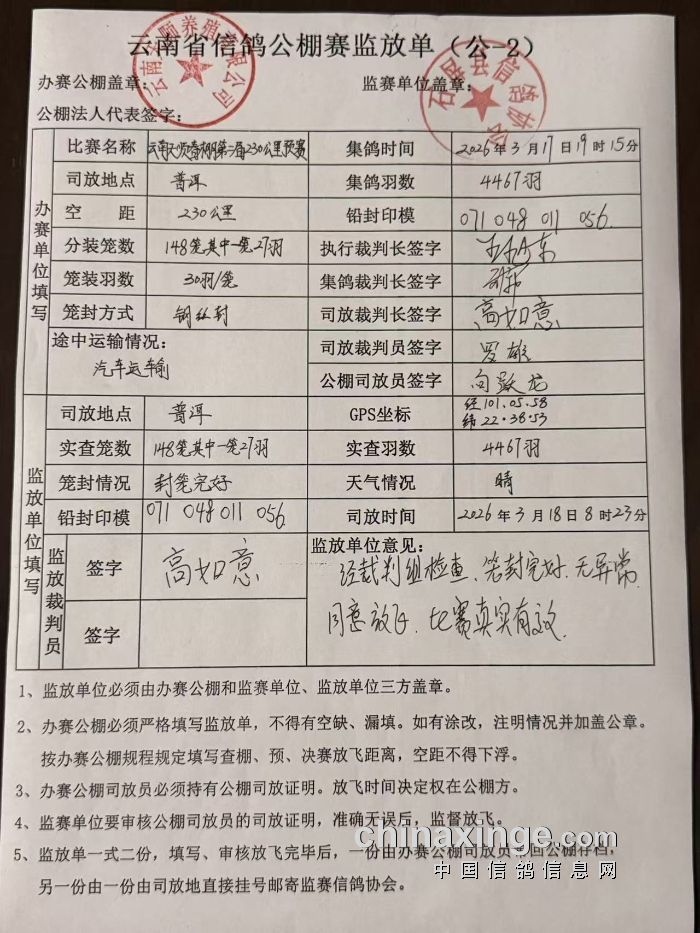 云南省信鸽公棚赛监放单（公-2）
办赛公棚盖章：
监赛单位盖章：
公棚法人代表签字：
办赛单位填写
比赛名称
集鸽时间 2026年3月17日19时15分
司放地点 普洱
集鸽羽数 4467羽
空 距 230公里
铅封印模 071 048 011 056
分装笼数 148笼其中一笼27羽
执行裁判长签字
笼装羽数 30羽/笼
集鸽裁判长签字
笼封方式 钢丝封
司放裁判长签字 高如意
途中运输情况：
汽车运输
司放裁判员签字 罗雄
公棚司放员签字 向跃龙
监放单位填写
司放地点 普洱
GPS坐标 经101.05.58
纬22.38.53
实查笼数 148笼其中一笼27羽
实查羽数 4467羽
笼封情况 封笼完好
天气情况 晴
铅封印模 071 048 011 056
司放时间 2026年3月18日8时23分
监放裁判员
签字 高如意
签字
监放单位意见：
经裁判组检查、笼封完好、无异常
同意放飞、比赛真实有效、
1、监放单位必须由办赛公棚和监赛单位、监放单位三方盖章。
2、办赛公棚必须严格填写监放单，不得有空缺、漏填。如有涂改，注明情况并加盖公章。
按办赛公棚规程规定填写查棚、预、决赛放飞距离，空距不得下浮。
3、办赛公棚司放员必须持有公棚司放证明。放飞时间决定权在公棚方。
4、监赛单位要审核公棚司放员的司放证明，准确无误后，监督放飞。
5、监放单一式二份，填写、审核放飞完毕后，一份由办赛公棚司放员带回公棚存档，
另一份由一份由司放地直接挂号邮寄监赛信鸽协会。
chinaxinge.com
中国信鸽信息网